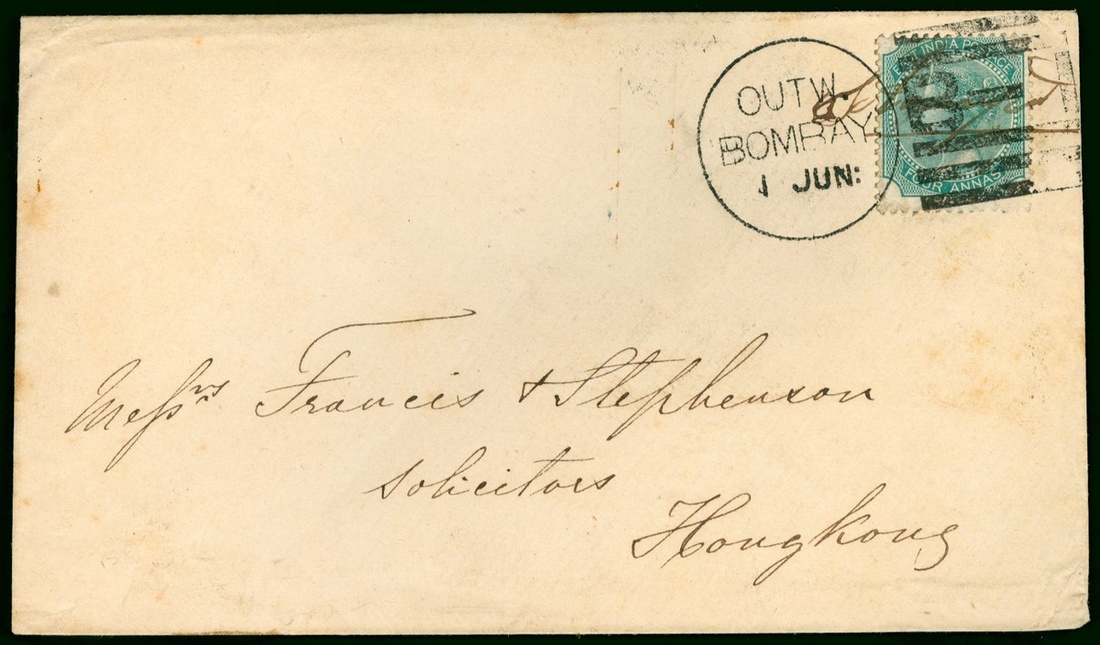 OUTW.
BOMBAY
1 JUN:
EAST INDIA POSTAGE
FOUR ANNAS
Messrs Francis & Stephenson
Solicitors
Hongkong